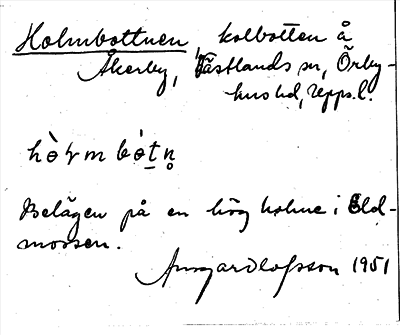 Holmbottnen, kolbotten å
Åkerby, Västlands sn, Örby-
hus hd, Upps. l.
hòɽm bòt̠n̥
Belägen på en hög holme i Eld-
mossen.
Ansgar Olofsson 1951